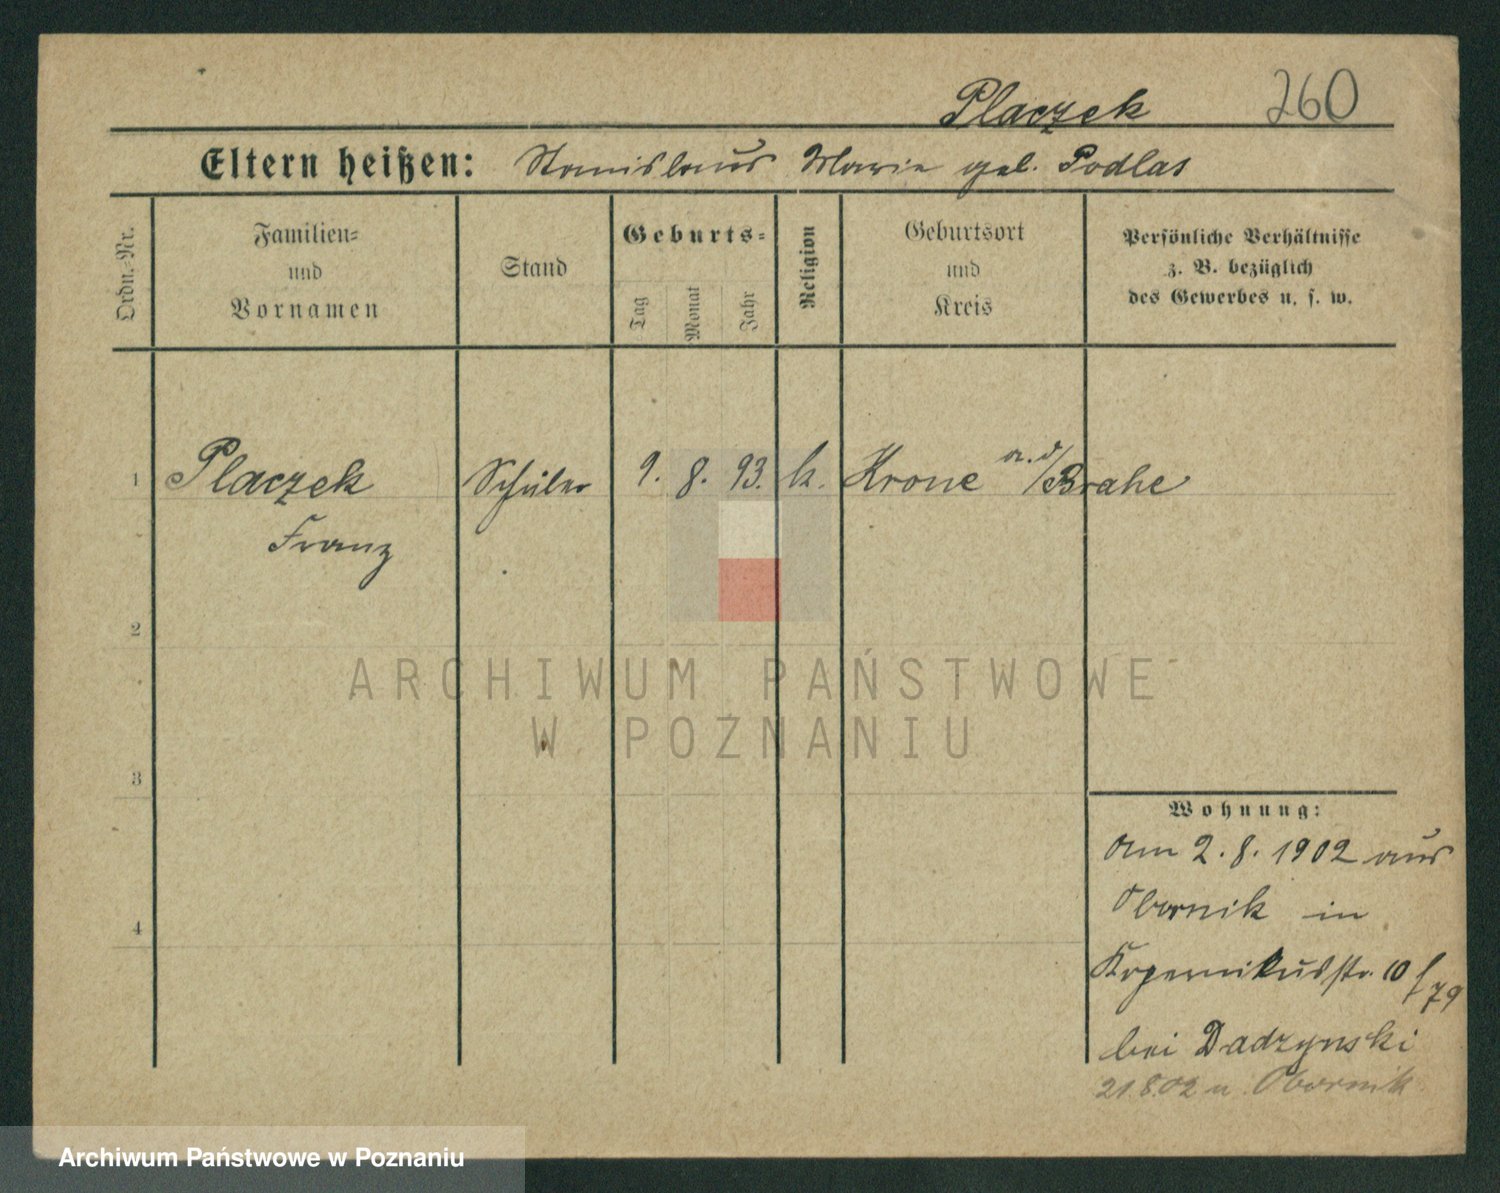 Placzek 260
Eltern heißen: Stanislaus Marie geb. Podlas
Ordn.=Nr.
Familien=
und
Vornamen
Stand
Geburts=
Tag
Monat
Jahr
Religion
Geburtsort
und
Kreis
Persönliche Verhältnisse
z. B. bezüglich
des Gewerbes u. s. w.
1 Placzek Schüler 9. 8. 93. k. Krone a. d/Brahe
Franz
2
ARCHIWUM PAŃSTWOWE
W POZNANIU
3
Wohnung:
Am 2. 8. 1902 aus
Obornik in
4
Kopernikusstr. 10 f/79
bei Dadzynski
21.8.02 n. Obornik
Archiwum Państwowe w Poznaniu